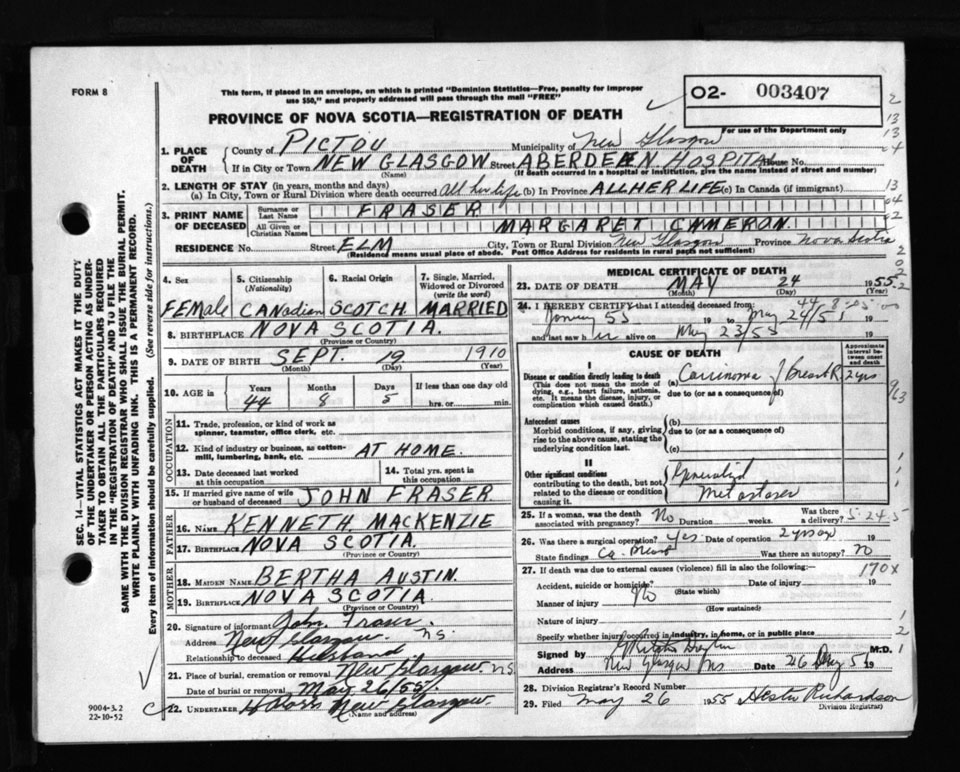 FORM 8
This form, if placed in an envelope, on which is printed "Dominion Statistics—Free, penalty for improper
use $50," and properly addressed will pass through the mail "FREE"
O2- 003407
For use of the Department only
PROVINCE OF NOVA SCOTIA—REGISTRATION OF DEATH
1. PLACE OF DEATH
County of PICTOU Municipality of New Glasgow
If in City or Town NEW GLASGOW Street ABERDEEN HOSPITAL House No.
(Name) (If death occurred in a hospital or institution, give the name instead of street and number)
2. LENGTH OF STAY (in years, months and days)
(a) In City, Town or Rural Division where death occurred all her life (b) In Province ALL HER LIFE (c) In Canada (if immigrant)
3. PRINT NAME OF DECEASED
Surname or Last Name FRASER
All Given or Christian Names MARGARET CAMERON
RESIDENCE No. Street ELM City, Town or Rural Division New Glasgow Province Nova Scotia
(Residence means usual place of abode. Post Office Address for residents in rural parts not sufficient)
4. Sex 5. Citizenship (Nationality) 6. Racial Origin 7. Single, Married, Widowed or Divorced (write the word)
FEMAle CANAdian SCOTCH MARRIED
8. BIRTHPLACE NOVA SCOTIA.
(Province or Country)
9. DATE OF BIRTH SEPT. 19 1910
(Month) (Day)
10. AGE in Years Months Days If less than one day old
44 8 5 hrs. or min.
OCCUPATION
11. Trade, profession, or kind of work as
spinner, teamster, office clerk, etc.
12. Kind of industry or business, as cotton-
mill, lumbering, bank, etc. AT HOME.
13. Date deceased last worked
at this occupation
14. Total yrs. spent in
this occupation
15. If married give name of wife
or husband of deceased JOHN FRASER
FATHER
16. NAME KENNETH MACKENZIE
17. BIRTHPLACE NOVA SCOTIA
(Province or Country)
MOTHER
18. MAIDEN NAME BERTHA AUSTIN.
19. BIRTHPLACE NOVA SCOTIA
(Province or Country)
20. Signature of informant John Fraser.
Address New Glasgow. N.S.
Relationship to deceased Husband.
21. Place of burial, cremation or removal New Glasgow N.S.
Date of burial or removal May 26/55.
22. UNDERTAKER New Glasgow.
(Name and address)
MEDICAL CERTIFICATE OF DEATH
23. DATE OF DEATH MAY 24 1955
(Month) (Day) (Year)
24. I HEREBY CERTIFY that I attended deceased from:
55 19 to May 24/55 19
and last saw her alive on May 23/55 19
CAUSE OF DEATH
Approximate interval between onset and death
I
Disease or condition directly leading to death
(This does not mean the mode of
dying, e.g., heart failure, asthenia,
etc. It means the disease, injury, or
complication which caused death.)
(a) Carcinoma of Breast R. 2 yrs
due to (or as a consequence of)
Antecedent causes
Morbid conditions, if any, giving
rise to the above cause, stating the
underlying condition last.
(b)
due to (or as a consequence of)
(c)
II
Other significant conditions
contributing to the death, but not
related to the disease or condition
causing it.
Generalized
Metastases
25. If a woman, was the death
associated with pregnancy? No Duration weeks. Was there a delivery?
26. Was there surgical operation? yes Date of operation 19
State findings Ca. Was there an autopsy? No
27. If death was due to external causes (violence) fill in also the following:—
170X
Accident, suicide or homicide? No Date of injury 19
(State which)
Manner of injury
(How sustained)
Nature of injury
Specify whether injury occurred in industry, in home, or in public place
Signed by M.D.
Address New Glasgow NS Date 26 19
28. Division Registrar's Record Number
29. Filed May 26 1955 Hester Richardson
Division Registrar
9004-3.2
22-10-52
SEC. 14—VITAL STATISTICS ACT MAKES IT THE DUTY
OF THE UNDERTAKER OR PERSON ACTING AS UNDER-
TAKER TO OBTAIN ALL THE PARTICULARS REQUIRED
IN THE "REGISTRATION OF DEATH" AND TO FILE THE
SAME WITH THE DIVISION REGISTRAR WHO SHALL ISSUE THE BURIAL PERMIT.
WRITE PLAINLY WITH UNFADING INK. THIS IS A PERMANENT RECORD.
Every item of information should be carefully supplied. (See reverse side for instructions.)